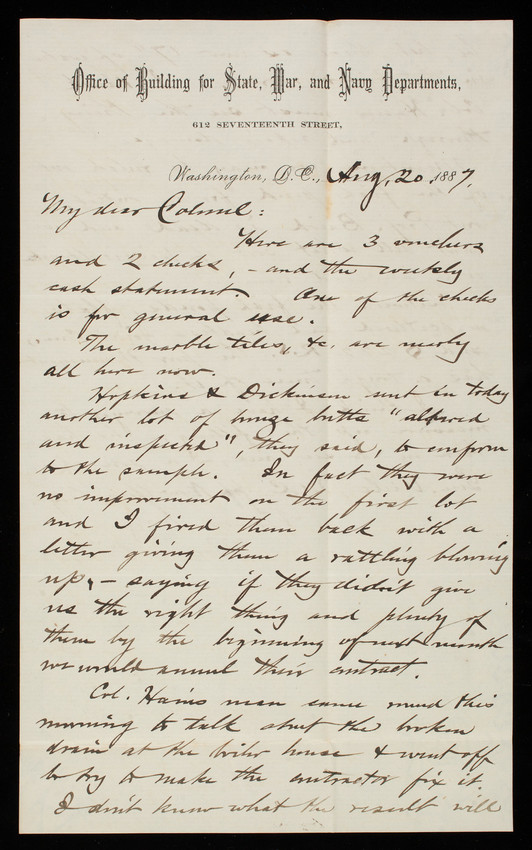 Office of Building for State, War, and Navy Departments,
612 SEVENTEENTH STREET,
Washington, D.C., Aug. 20. 1887.
My dear Colonel:
Here are 3 vouchers
and 2 checks, – and the weekly
cash statement. One of the checks
is for general use.
The marble tiles, &c. are nearly
all here now.
Hopkins & Dickinson sent in today
another lot of bronze butts "altered
and inspected", they said, to conform
to the sample. In fact they were
no improvement on the first lot
and I fired them back with a
letter giving them a rattling blowing
up, – saying if they didn't give
us the right thing and plenty of
them by the beginning of next month
we would annul their contract.
Col. Hains man came round this
morning to talk about the broken
drain at the boiler house & went off
to try to make the contractor fix it.
I don't know what the result will